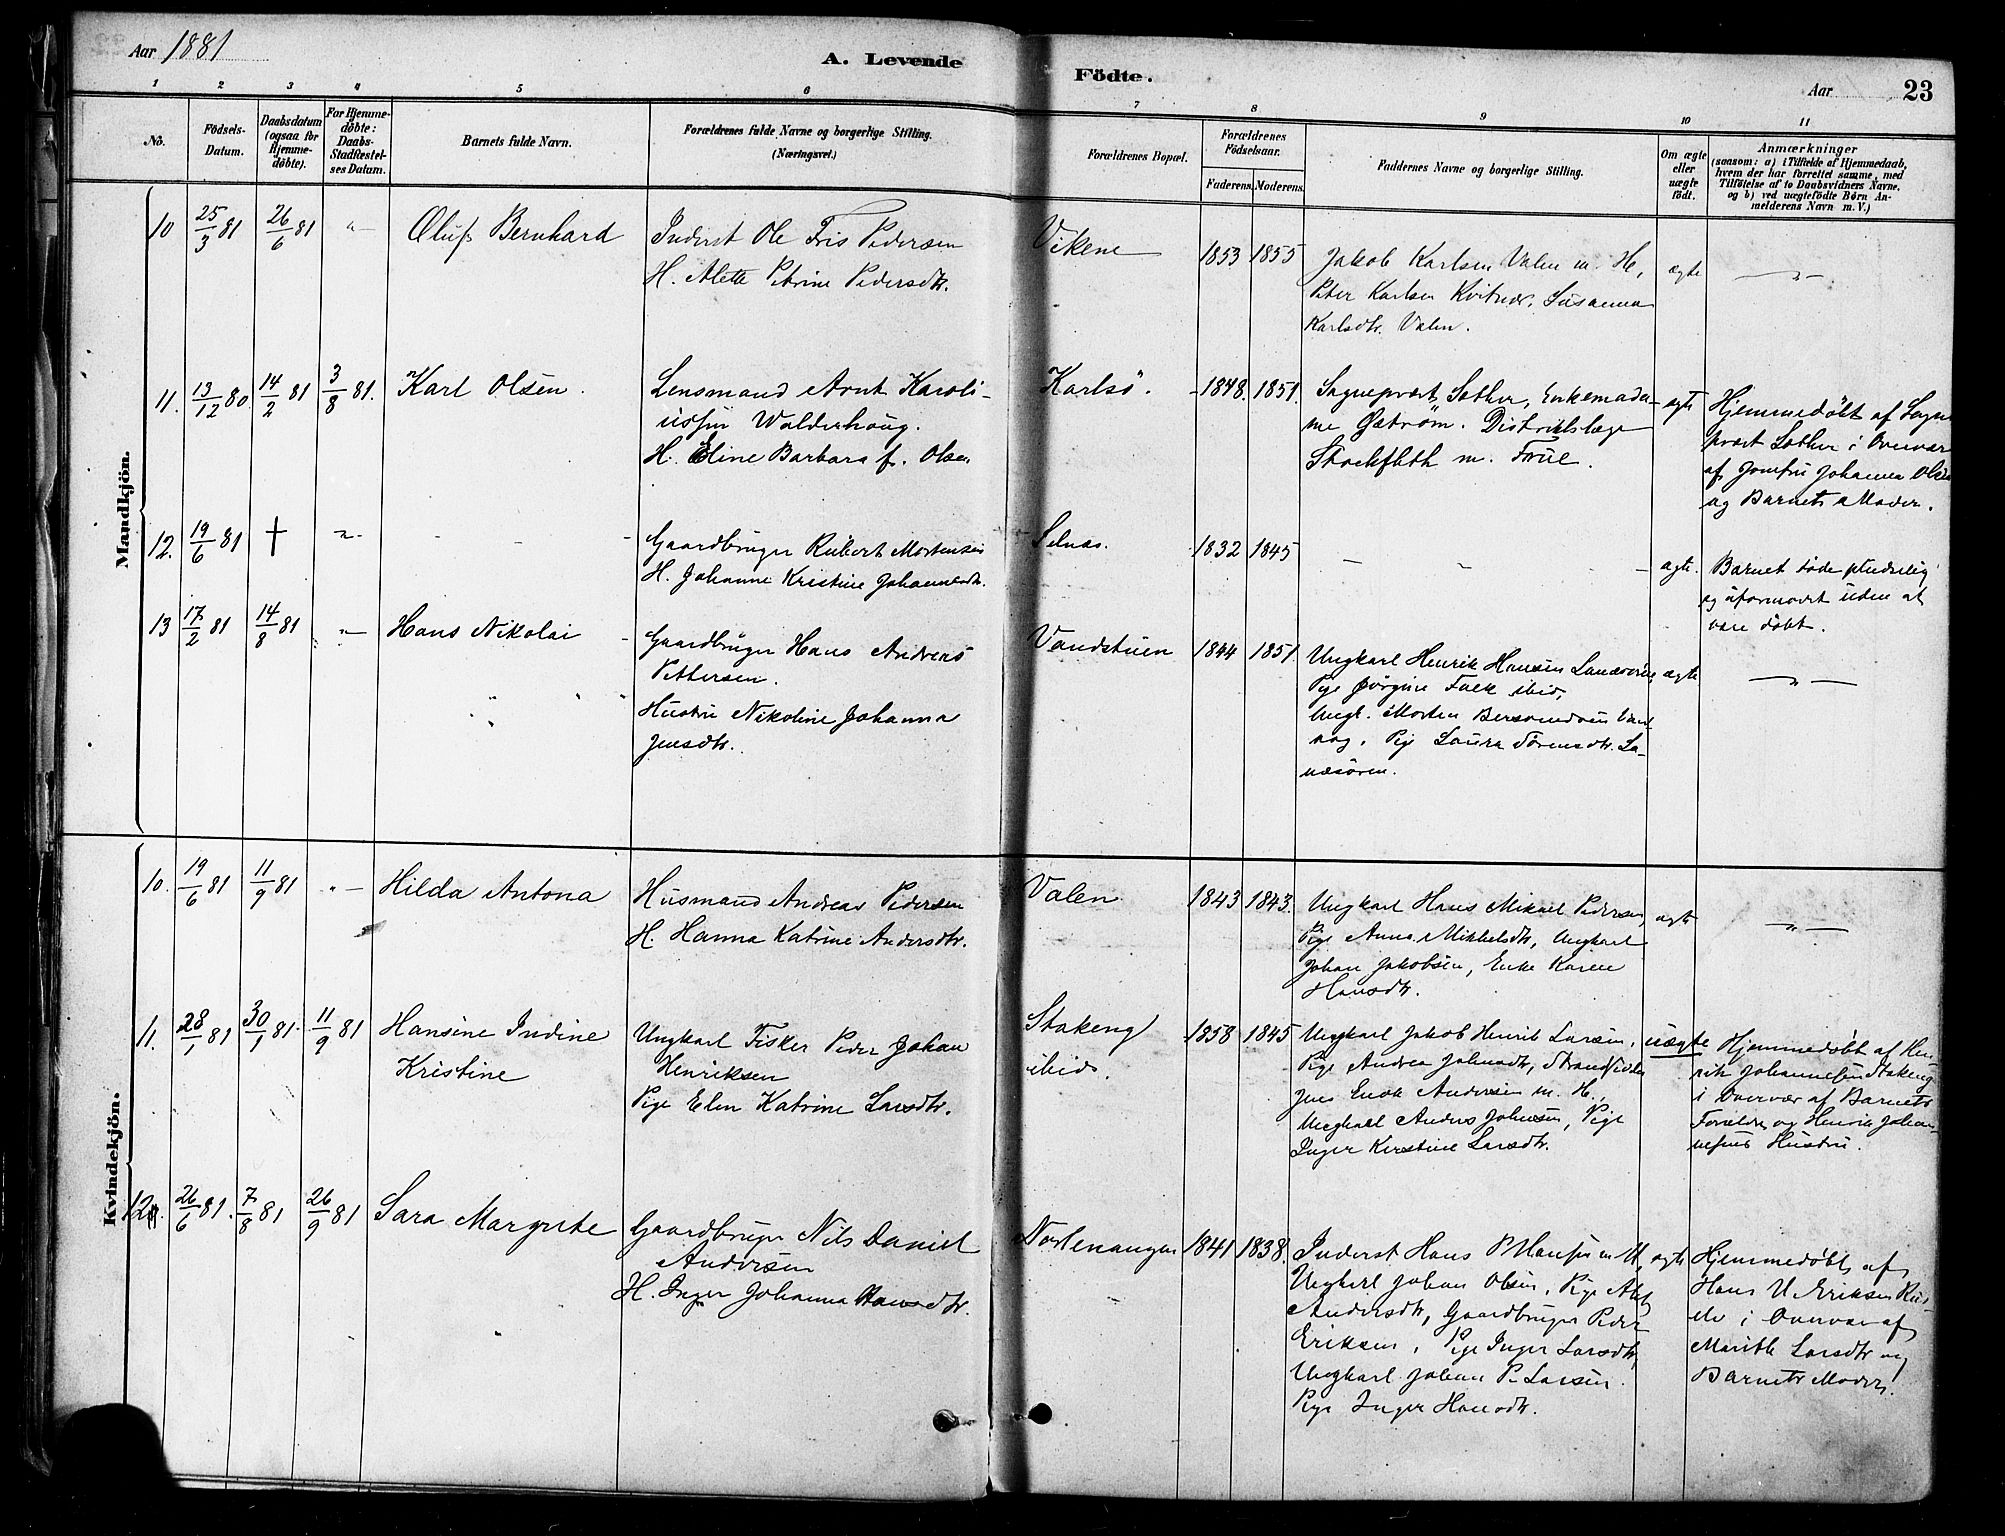 Aar 1881
A. Levende
Födte.
Aar
23
1 2 3 4 5 6 7 8 9 10 11
No.
Födsels-
Datum.
Daabsdatum
(ogsaa for
Hjemme-
døbte).
For Hjemme-
døbte:
Daabs-
Stadfæstel-
ses Datum.
Barnets fulde Navn.
Forældrenes fulde Navne og borgerlige Stilling.
(Næringsvei.)
Forældrenes Bopæl.
Forældrenes
Födselsaar.
Faderens. Moderens.
Faddernes Navne og borgerlige Stilling.
Om ægte
eller
uægte
födt.
Anmærkninger
(saasom: a) i Tilfælde af Hjemmedaab,
hvem der har forrettet samme, med
Tilföielse af to Daabsvidners Navne,
og b) ved uægtefödte Börn An-
melderens Navn m. V.)
Mandkjön.
10 25/3 81 26/6 81 " Oluf Bernhard
Inderst Ole Fris Pedersen
H. Alette Petrine Pedersdtr.
Vikene 1853 1855
Jakob Karlsen Valen m. H.,
Peter Karlsen Kvitnes, Susanna
Karlsdtr. Valen.
ægte "
11. 13/12 80. 14/2 81 3/8 81. Karl Olsen.
Lensmand Arnt Karoli-
ussen Walderhaug.
H. Eline Barbara f. Olsen
Karlsö. 1848. 1851.
Sogneprest Sæther, Enkemada-
me Distriktslæge
Stockfleth m. Frue.
ægte
Hjemmedøbt af Sogne
præst Sæther i Overvær
af Jomfru Johanna Olsen
og Barnets Moder.
12. 19/6 81 † "
Gaardbruger Robert Mortensen
H. Johanne Kristine Johannesdtr.
Selnæs. 1832 1845
ægte.
Barnet døde pludselig
og uformodet uden at
være døbt.
13 17/2 81 14/8 81 " Hans Nikolai
Gaardbruger Hans Andreas
Pettersen.
Hustru Nikoline Johanna
Jensdtr.
Vandstuen 1844 1851.
Ungkarl Henrik Hansen
Pige Jörgine Falk ibid,
Ungk. Morten
Pige Laura Sörensdtr. La-
næsören.
ægte "
Kvindekjön.
10. 19/6 81 11/9 81 " Hilda Antona
Husmand Andreas Pedersen
H. Hanna Katrine Andersdtr.
Valen 1843 1843.
Ungkarl Hans Mikael Pedersen,
Pige Anna Mikkelsdtr, Ungkarl
Johan Jakobsen, Enke Karen
Hansdtr.
ægte "
11. 28/1 81 30/1 81. 11/9 81 Hansine Indine
Kristine
Ungkarl Fisker Peder Johan
Henriksen
Pige Elen Katrine Larsdtr.
Stakeng
ibid. 1858 1845
Ungkarl Jakob Henrik Larsen,
Pige Andrea Johnsdtr, Strandsidder
Jens Enok Andersen m. H.,
Ungkarl Anders Johnsen, Pige
Inger Kirstine Larsdtr.
uægte
Hjemmedøbt af Hen
rik Johannesen Stakeng
i Overvær af Barnets
Forældre og Henrik Johan-
nesens Hustru.
12. 26/6 81. 7/8 81 26/9 81 Sara Margrete
Gaardbruger Nils Daniel
Andersen
H. Inger Johanna Hansdtr.
Nordenangen 1841 1838.
Inderst Hans P Hansen m H,
Ungkarl Johan Olsen, Pige
Andersdtr, Gaardbruger Peder
Eriksen, Pige Inger Larsdtr,
Ungkarl Johan P. Larsen.
Pige Inger Hansdtr.
ægte
Hjemmedøbt af
Hans U. Eriksen
i Overvær af
Marith Larsdtr og
Barnets Moder.